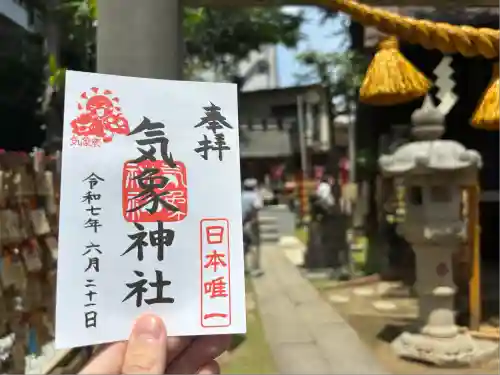 奉拝
気象神社
日本唯一
令和七年 六月二十一日
気象祭